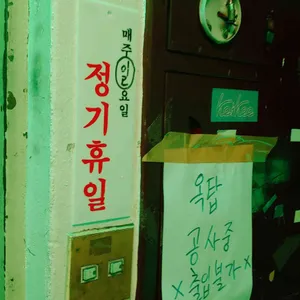 매주 일요일
정기휴일
옥탑
공사중
x출입불가x